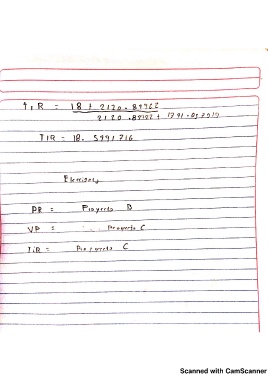 TIR = 18 + 2120.89922
2120.89922 +
TIR = 18.5991716
PR = Proyecto B
VP = Proyecto C
TIR = Proyecto C
Scanned with CamScanner